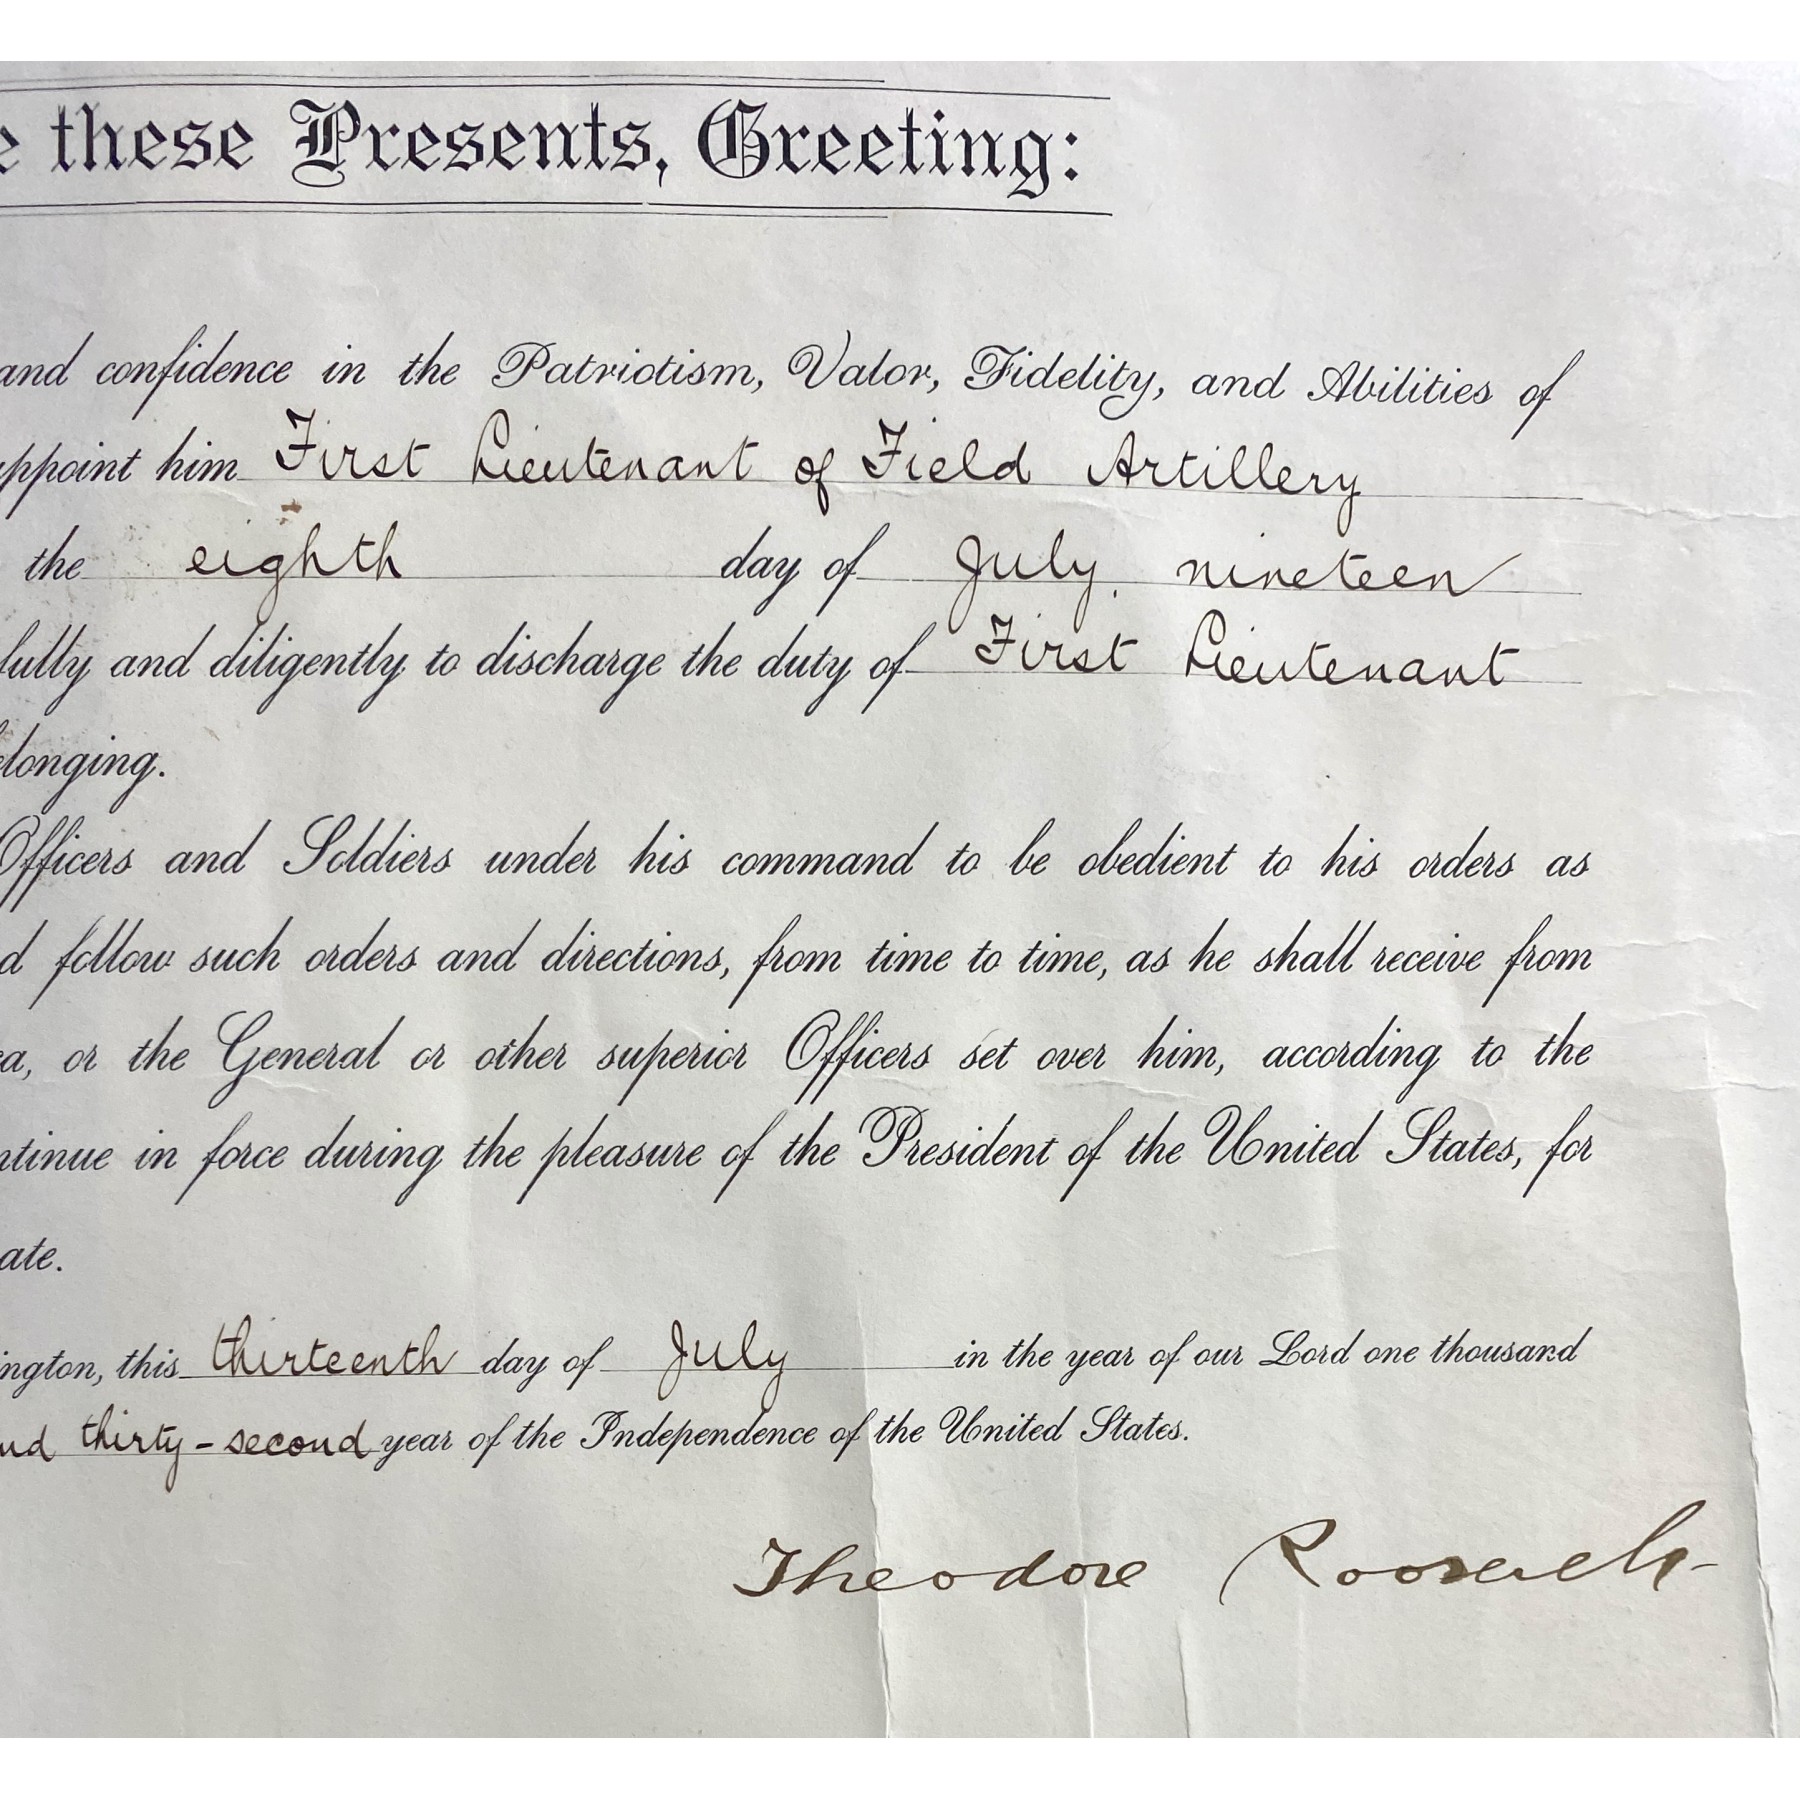 e these Presents, Greeting:
and confidence in the Patriotism, Valor, Fidelity, and Abilities of
ppoint him First Lieutenant of Field Artillery
the eighth day of July, nineteen
fully and diligently to discharge the duty of First Lieutenant
elonging.
Officers and Soldiers under his command to be obedient to his orders as
d follow such orders and directions, from time to time, as he shall receive from
ca, or the General or other superior Officers set over him, according to the
ntinue in force during the pleasure of the President of the United States, for
ate.
ington, this thirteenth day of July in the year of our Lord one thousand
nd thirty-second year of the Independence of the United States.
Theodore Roosevelt